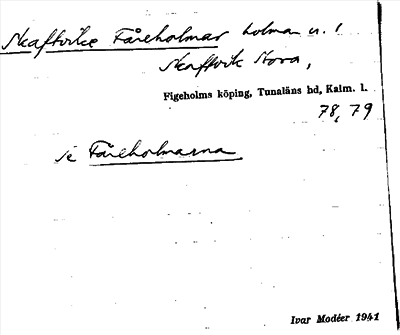 Skaftviks Fåreholmar holmar u. /
Skaftvik Stora,
Figeholms köping, Tunaläns hd, Kalm. l.
78, 79
se Fåreholmarna
Ivar Modéer 1941